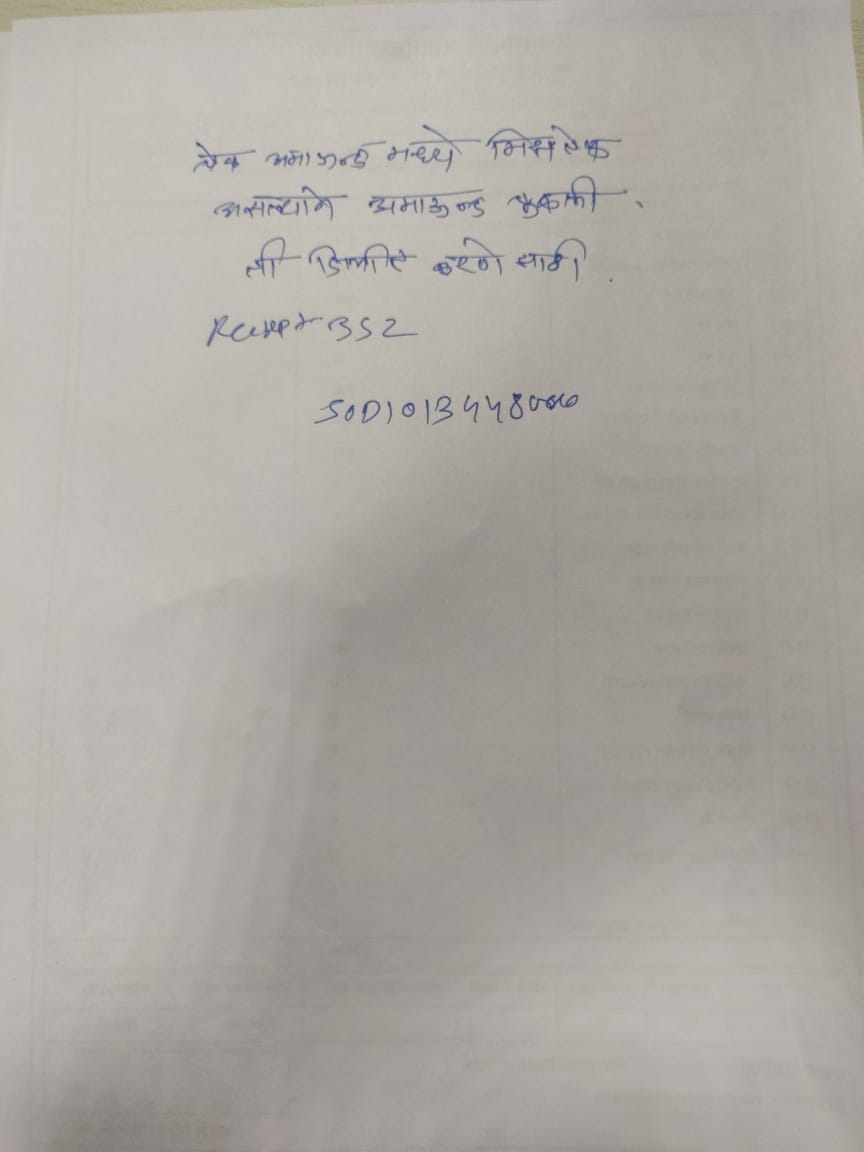 चेक अमाऊन्ड मध्ये मिसटेक
असल्याने अमाऊन्ड चुकली.
ती डिलीट करणे साठी.
Receipt 352
SOD1013448000